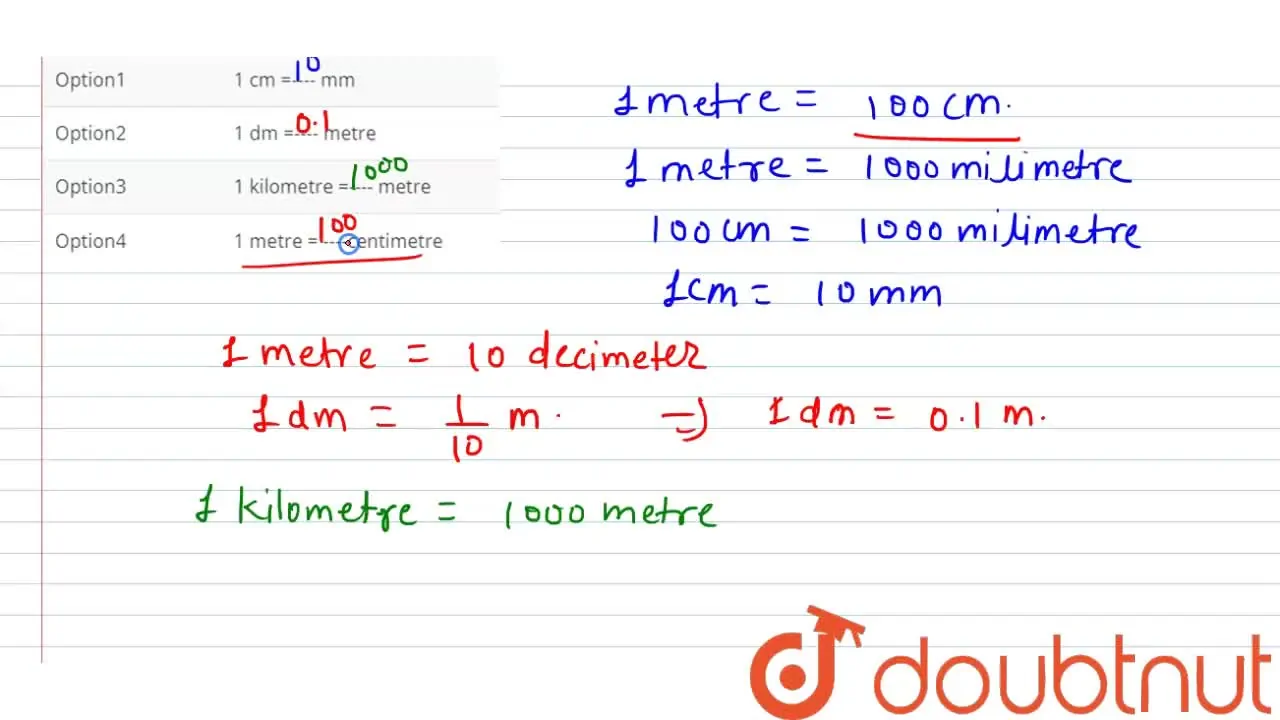 Option1 1 cm =10 mm
Option2 1 dm =0.1 metre
Option3 1 kilometre =1000 metre
Option4 1 metre =100 entimetre
1 metre = 100 cm.
1 metre = 1000 milimetre
100 cm = 1000 milimetre
1 cm = 10 mm
1 metre = 10 decimeter
1 dm = 1/10 m. => 1 dm = 0.1 m.
1 kilometre = 1000 metre
doubtnut